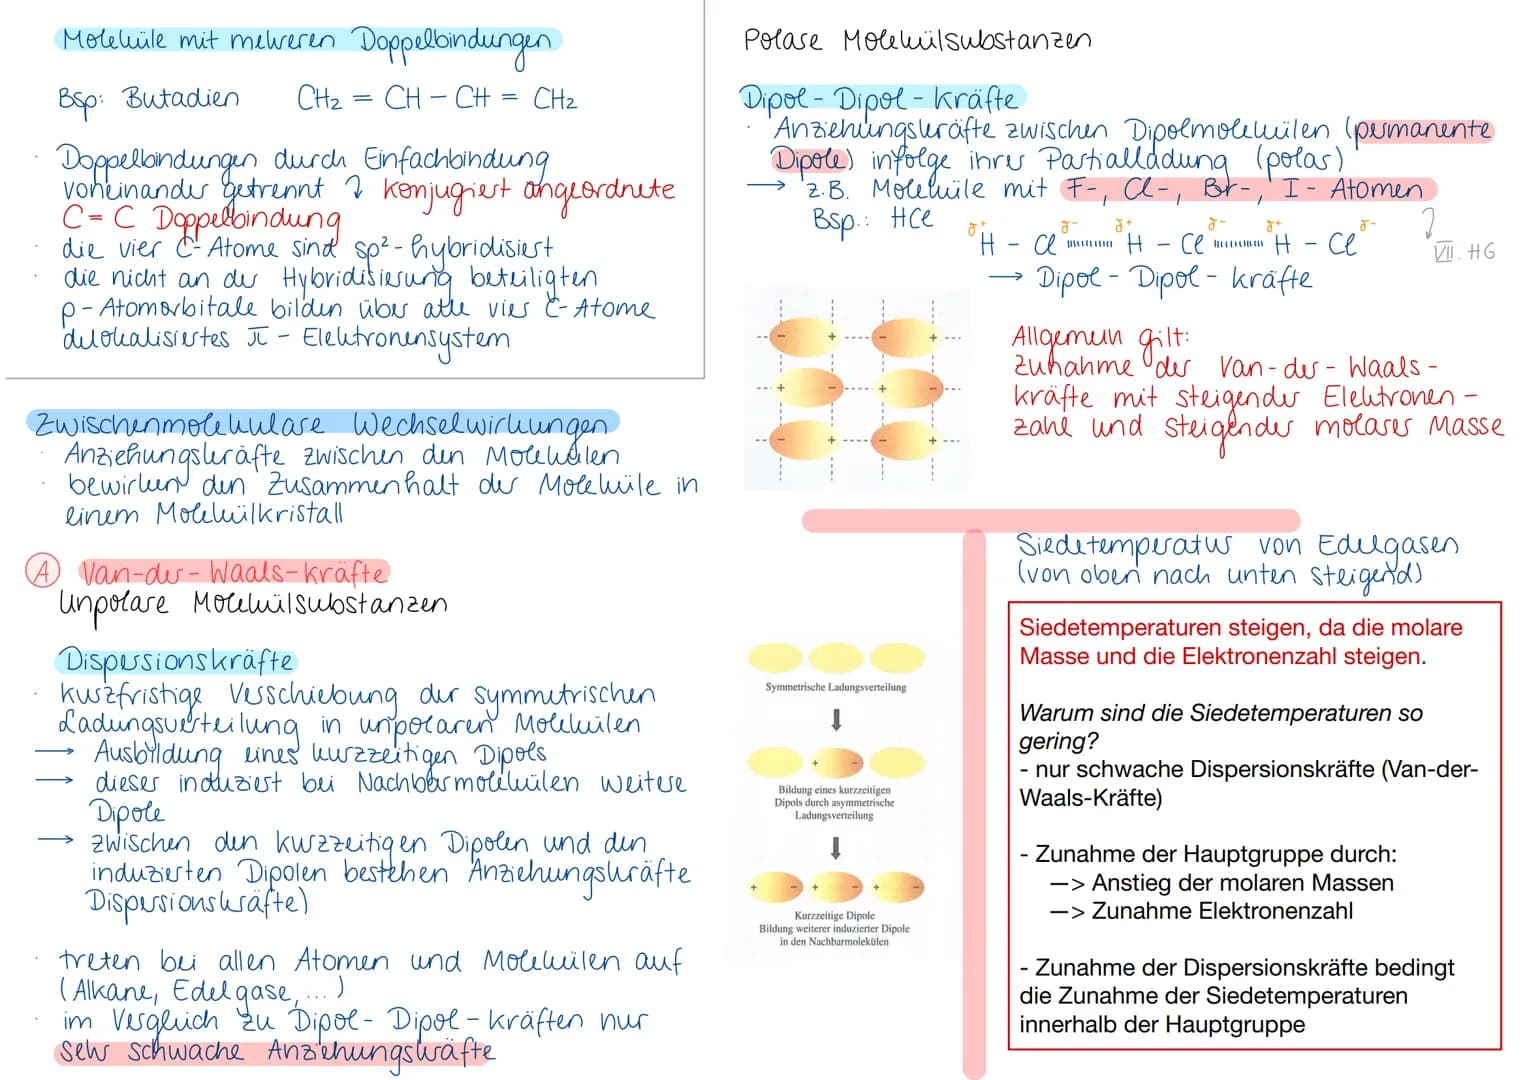 Moleküle mit mehreren Doppelbindungen
Bsp: Butadien CH₂ = CH – CH = CH₂
· Doppelbindungen durch Einfachbindung
voneinander getrennt ↴ konjugiert angeordnete
C = C Doppelbindung
· die vier C-Atome sind sp²-hybridisiert
· die nicht an der Hybridisierung beteiligten
p-Atomorbitale bilden über alle vier C-Atome
delokalisiertes π-Elektronensystem
Zwischenmolekulare Wechselwirkungen
· Anziehungskräfte zwischen den Molekülen
· bewirken den Zusammenhalt der Moleküle in
einem Molekülkristall
A Van-der-Waals-Kräfte
Unpolare Molekülsubstanzen
Dispersionskräfte
· kurzfristige Verschiebung der symmetrischen
Ladungsverteilung in unpolaren Molekülen
→ Ausbildung eines kurzzeitigen Dipols
→ dieser induziert bei Nachbarmolekülen weitere
Dipole
→ zwischen den kurzzeitigen Dipolen und den
induzierten Dipolen bestehen Anziehungskräfte
Dispersionskräfte)
· treten bei allen Atomen und Molekülen auf
(Alkane, Edelgase, ...)
· im Vergleich zu Dipol-Dipol-Kräften nur
sehr schwache Anziehungskräfte
Polare Molekülsubstanzen
Dipol-Dipol-Kräfte
· Anziehungskräfte zwischen Dipolmolekülen (permanente
Dipole) infolge ihrer Partialladung (polar)
→ z.B. Moleküle mit F-, Cl-, Br-, I-Atomen
Bsp.: HCl
δ+ δ- δ+ δ- δ+ δ-
H – Cl ıııııııı H – Cl ıııııııı H – Cl
VII. HG
→ Dipol-Dipol-Kräfte
- + - +
+ - + -
- + - +
Allgemein gilt:
Zunahme der Van-der-Waals-
kräfte mit steigender Elektronen-
zahl und steigender molarer Masse
Symmetrische Ladungsverteilung
+ -
Bildung eines kurzzeitigen
Dipols durch asymmetrische
Ladungsverteilung
+ - + - + -
Kurzzeitige Dipole
Bildung weiterer induzierter Dipole
in den Nachbarmolekülen
Siedetemperatur von Edelgasen
(von oben nach unten steigend)
Siedetemperaturen steigen, da die molare
Masse und die Elektronenzahl steigen.
Warum sind die Siedetemperaturen so
gering?
- nur schwache Dispersionskräfte (Van-der-
Waals-Kräfte)
- Zunahme der Hauptgruppe durch:
—> Anstieg der molaren Massen
—> Zunahme Elektronenzahl
- Zunahme der Dispersionskräfte bedingt
die Zunahme der Siedetemperaturen
innerhalb der Hauptgruppe